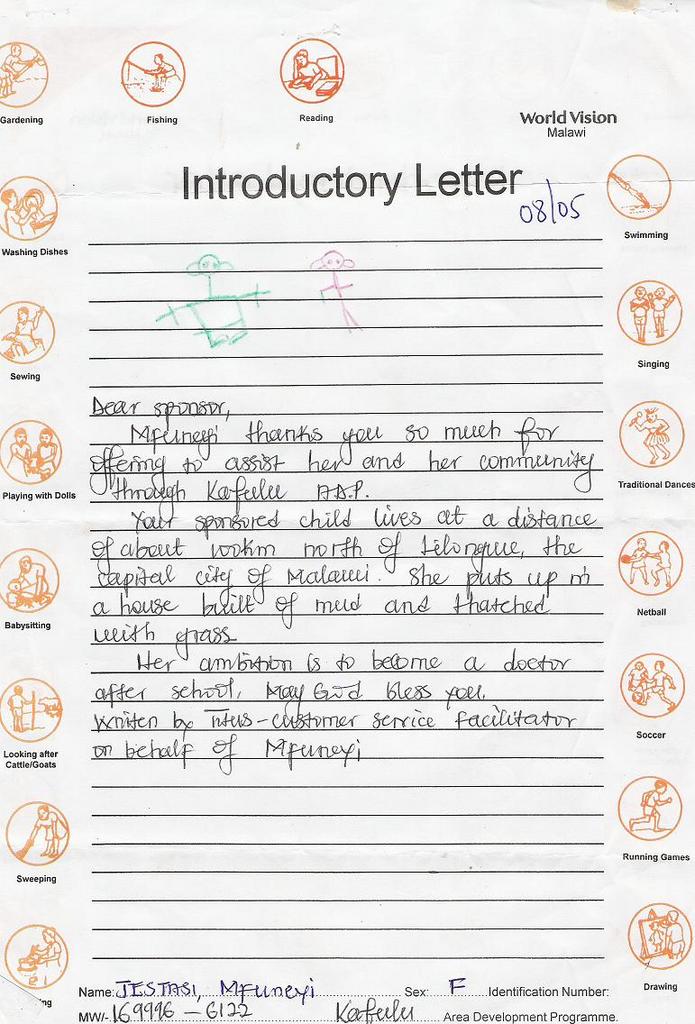 Gardening
Fishing
Reading
World Vision
Malawi
Introductory Letter
08/05
Washing Dishes
Swimming
Sewing
Singing
Playing with Dolls
Traditional Dances
Babysitting
Netball
Looking after
Cattle/Goats
Soccer
Sweeping
Running Games
Drawing
Dear sponsor,
Mfuneyi thanks you so much for
offering to assist her and her community
through Kafulu A.D.P.
Your sponsored child lives at a distance
of about 100km north of Lilongwe, the
capital city of Malawi. She puts up in
a house built of mud and thatched
with grass
Her ambition is to become a doctor
after school. May God bless you.
Written by - customer service facilitator
on behalf of Mfuneyi
Name: JESTASI, Mfuneyi Sex: F Identification Number:
MW/- 169996 - 6122 Kafulu Area Development Programme.